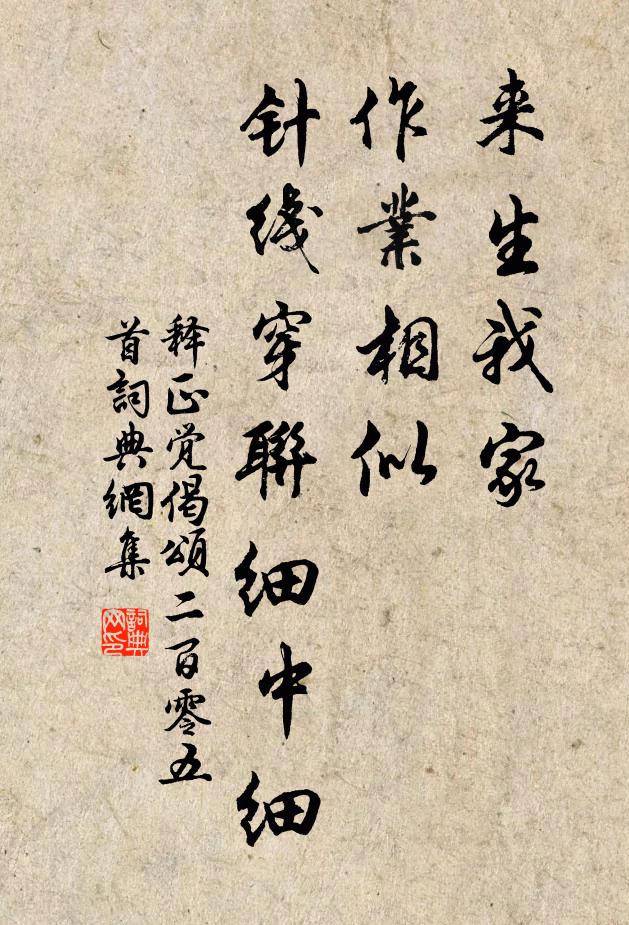 来生我家
作業相似
针线穿聯细中细
释正觉偈頌二百零五
首詞典網集
詞典
网印